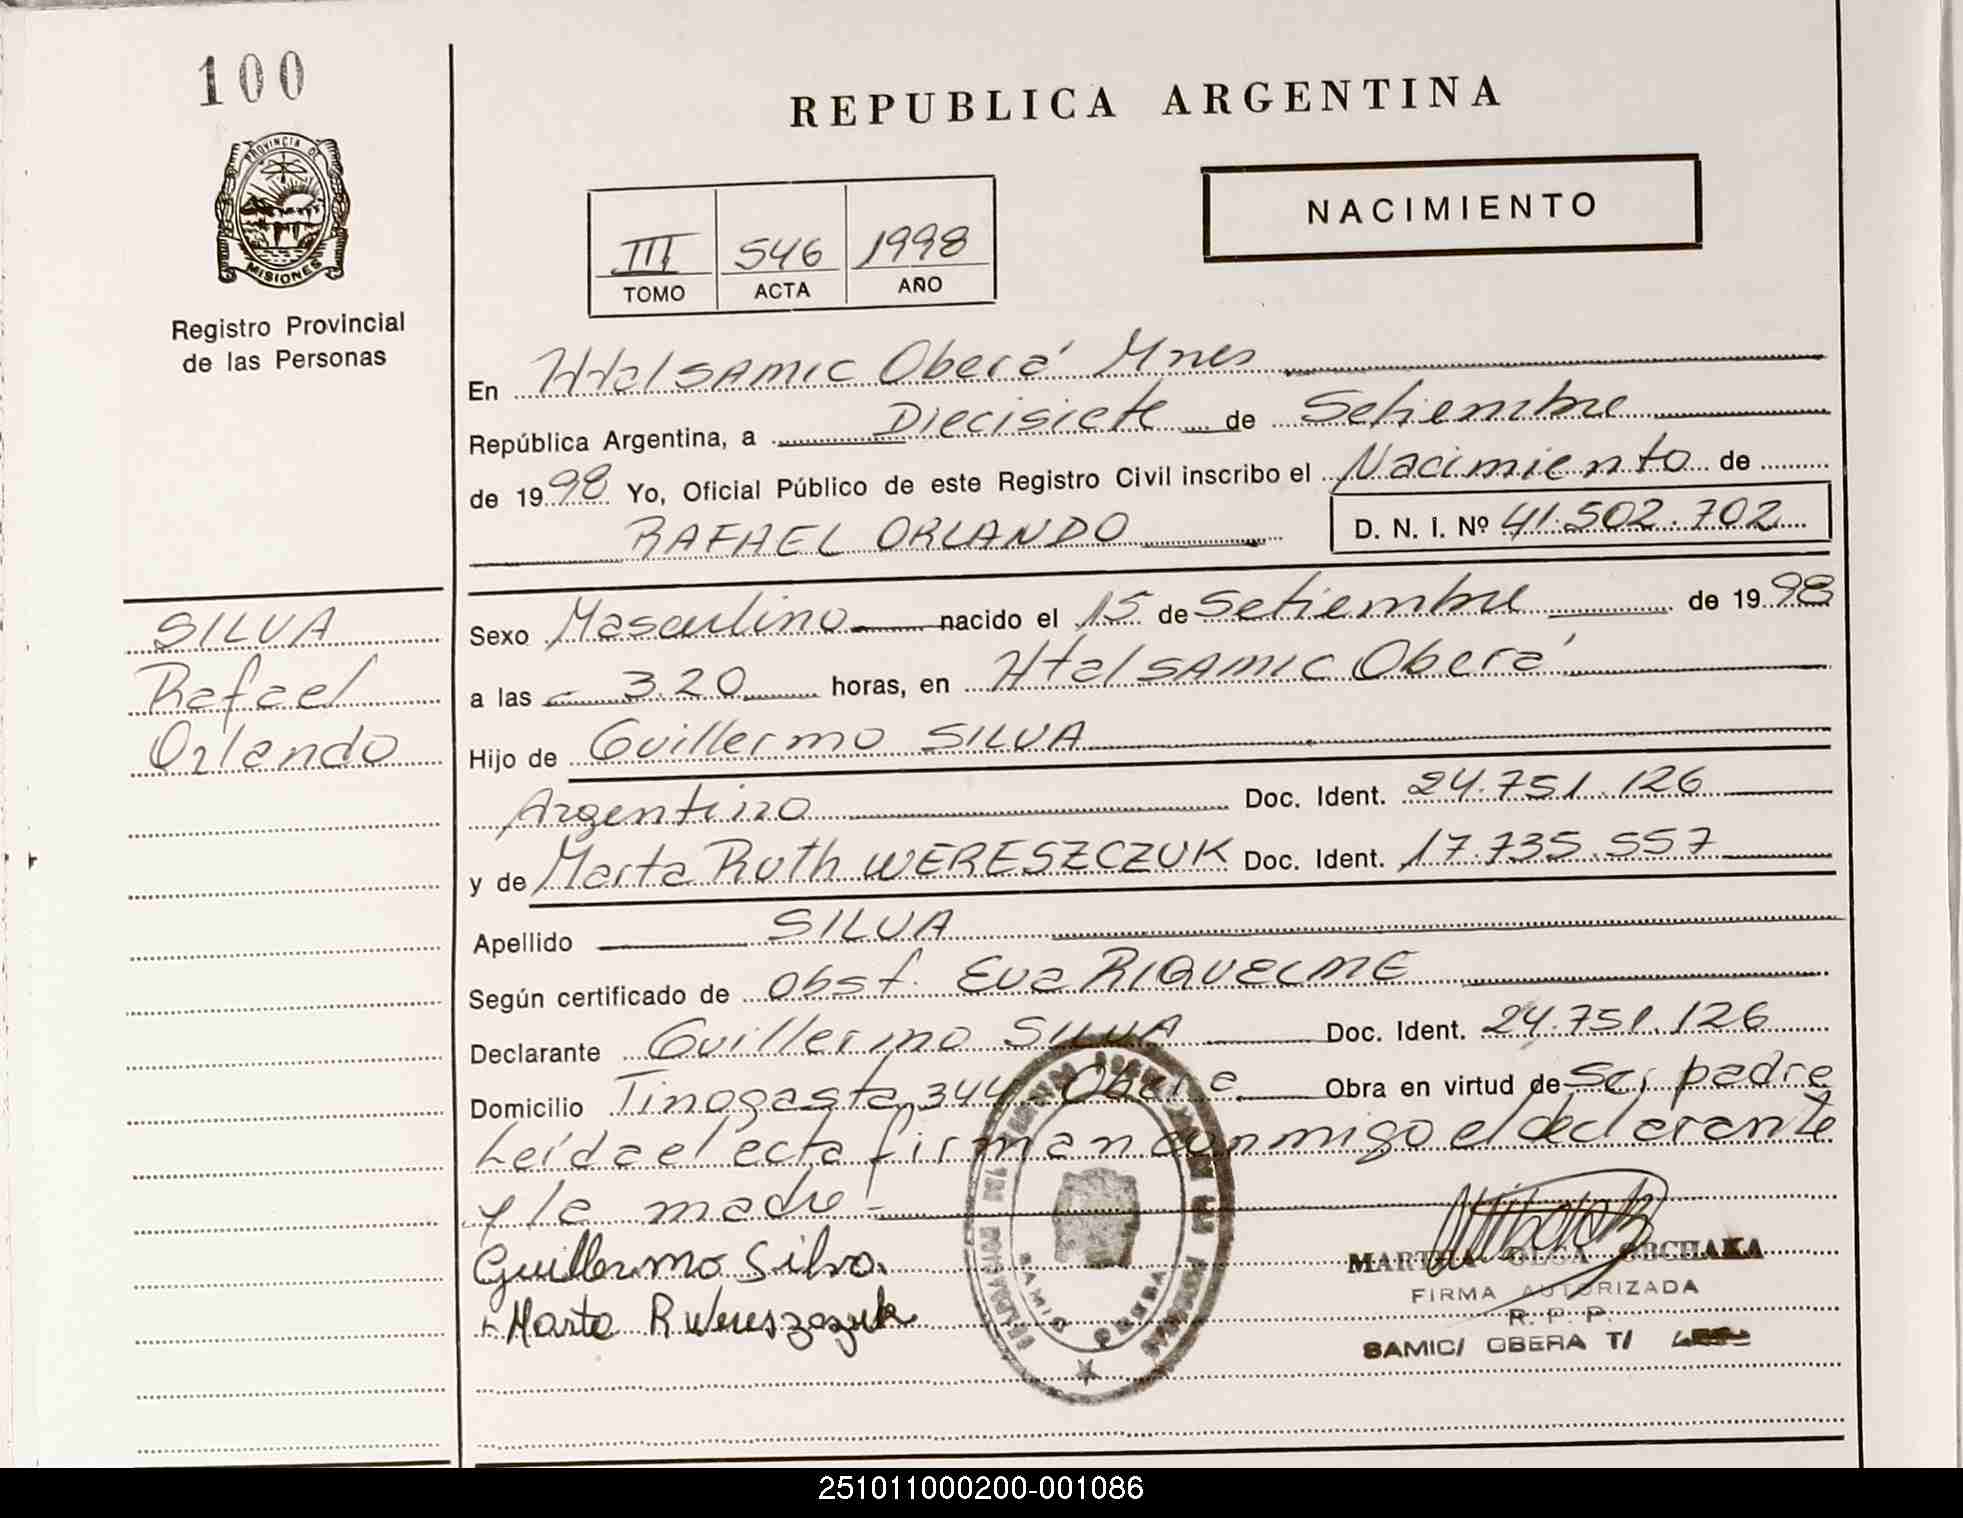 100
PROVINCIA DE
MISIONES
Registro Provincial
de las Personas
REPUBLICA ARGENTINA
NACIMIENTO
III 546 1998
TOMO ACTA AÑO
En Htal SAMIC Oberá Mnes
República Argentina, a Diecisiete de Setiembre
de 1998 Yo, Oficial Público de este Registro Civil inscribo el Nacimiento de
RAFAEL ORLANDO D. N. I. Nº 41.502.702
SILVA
Rafael
Orlando
Sexo Masculino nacido el 15 de Setiembre de 1998
a las 3.20 horas, en Htal SAMIC Oberá
Hijo de Guillermo SILVA
Argentino Doc. Ident. 24.751.126
y de Marta Ruth WERESZCZUK Doc. Ident. 17.735.557
Apellido SILVA
Según certificado de Obst. Eva RIQUELME
Declarante Guillermo SILVA Doc. Ident. 24.751.126
Domicilio Tinogasta 344 Oberá Obra en virtud de ser padre
Leída el acta firman conmigo el declarante
y la madre
Guillermo Silva
Marta R Wereszczuk
SAMIC OBERA
MARTHA OLGA OBCHAKA
FIRMA AUTORIZADA
R. P. P.
SAMIC/ OBERA T/
251011000200-001086